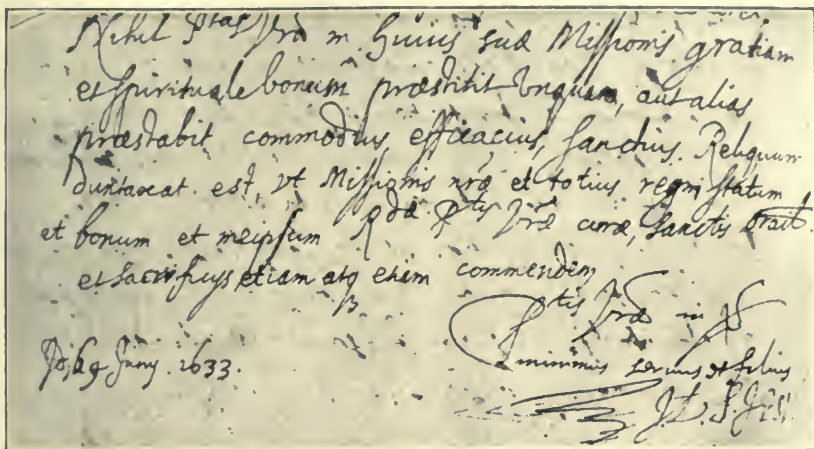 Nihil Ptas Vrã in huius suæ Missionis gratiam
et spirituale bonum præstitit unquam, aut alias
præstabit commodius, efficacius, sanctius. Reliquum
duntaxat est, vt Missionis nræ et totius regni statum
et bonum et meipsum Rdæ Ptis Vræ curæ, sanctis orat.
et sacrificijs etiam atq etiam commendem
Ptis Vræ in
9 Junij 1633.
minimus servus et filius